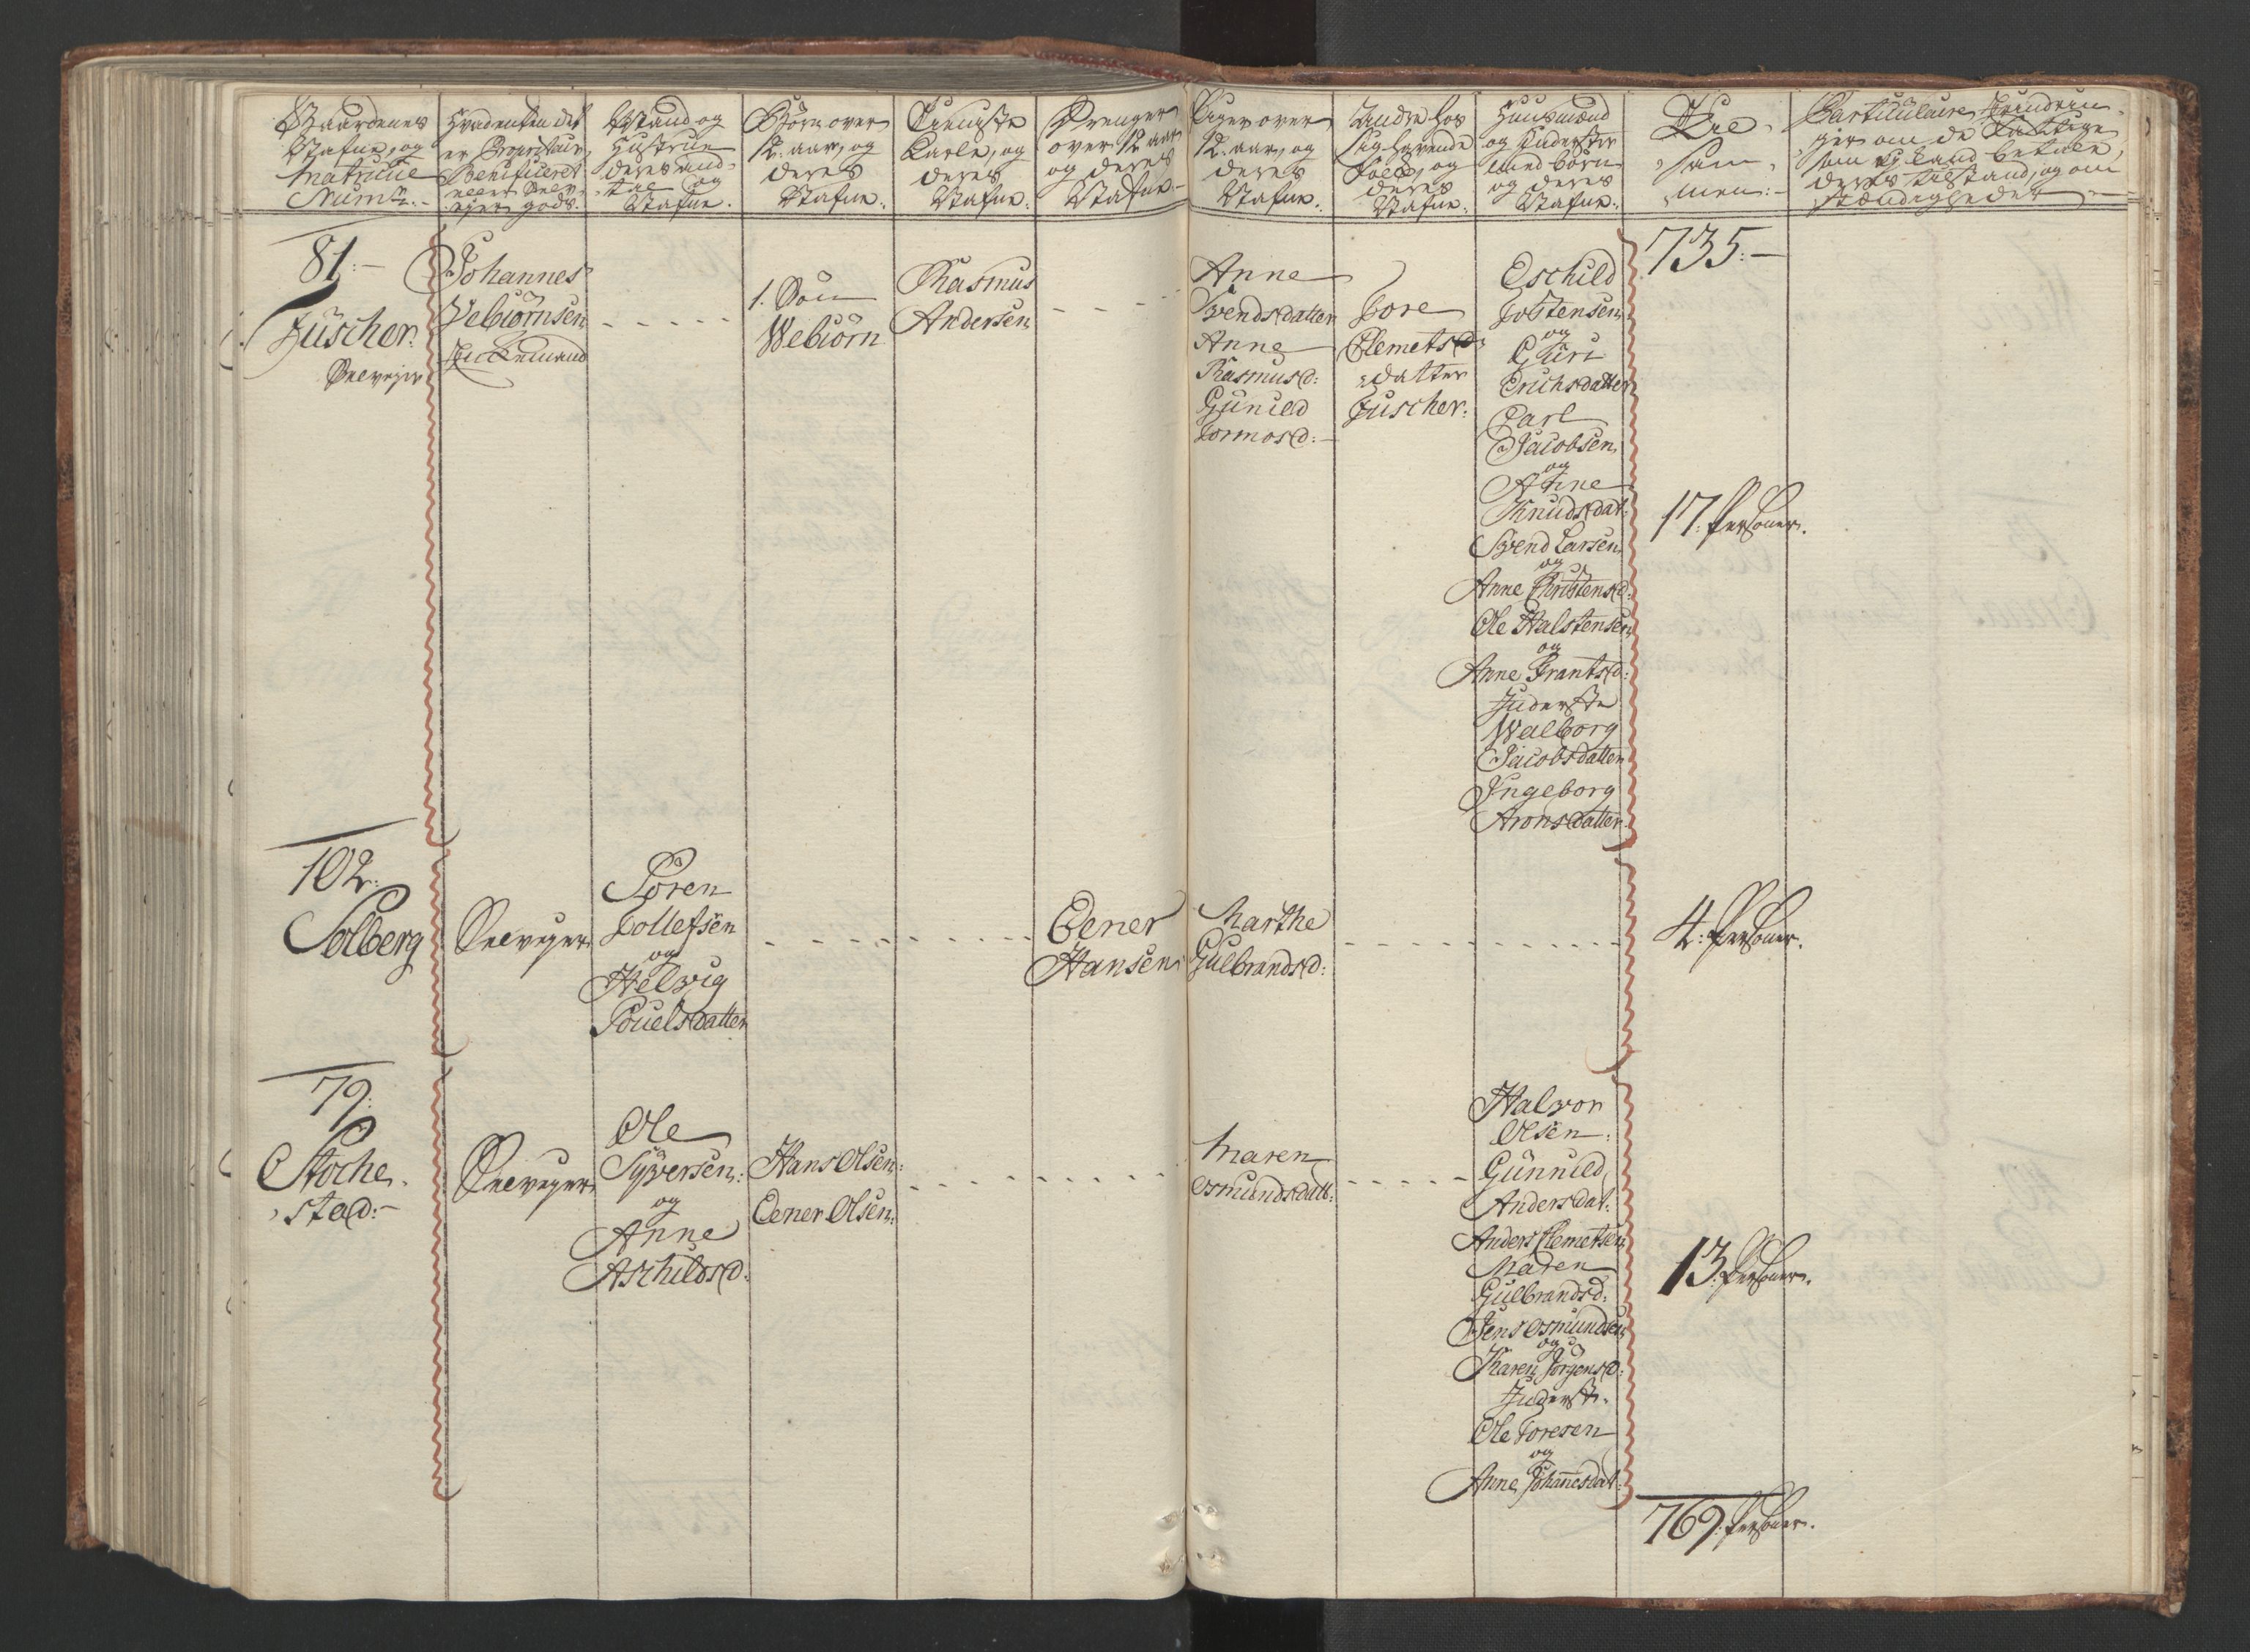 Gaardenes
Nafne, og
Matricul
Num:
Hvadenten det
er Proprietair,
Beneficeret
eller Selv-
ejer gods.
Mand og
Hustrue
deres and-
tal og
Nafne.
Børn over
12. aar, og
deres
Nafne.
Tieniste
Karle, og
deres
Nafne.
Drenger
over 12 aar
og deres
Nafne
Piger over
12. aar, og
deres
Nafne.
Andre hos
sig havende
Folk, og
deres
Nafne.
Huusmænd
og Inderster
med børn
og deres
Nafne.
Til-
sam-
men:
Particulaire Erindrin-
ger om de Fattige
som ej kand betale,
deres tilstand, og om
stændigheder
81:
Fuscher.
Selvejer
Johannes
Vebiørnsen
Enckemand
1. Søn
Webiørn
Rasmus
Andersen
Anne
Svendsdatter
Anne
Rasmusd:
Gunild
Tormosd:
Tore
Clemetsd
datter
Fuscher.
Eschild
Tostensen
og
Guri
Erichsdatter
Carl
Jacobsen
og
Anne
Knudsdat:
Svend Larsen
og
Anne Christensd:
Ole Halstensen
og
Anne Frantsd:
Inderste
Walborg
Jacobsdatter
Ingeborg
Aronsdatter.
735:
17. Personer.
102:
Solberg
Selvejer
Søren
Tollefsen
og
Helvig
Pouelsdatter
Eener
Hansen
Marthe
Gulbrandsd:
4: Personer.
79:
Stoche
stad:
Selvejer
Ole
Syversen:
og
Anne
Aschildsd:
Hans Olsen:
Eener Olsen:
Maren
Osmundsdatt:
Halvor
Olsen:
Gunnild
Andersdat:
Anders Clemetsen
Maren
Gulbrandsd:
Jens Osmundsen
og
Karen Jørgensd:
Inderste.
Ole Toresen
og
Anne Johannesdat:
13. Personer.
769: Personer.